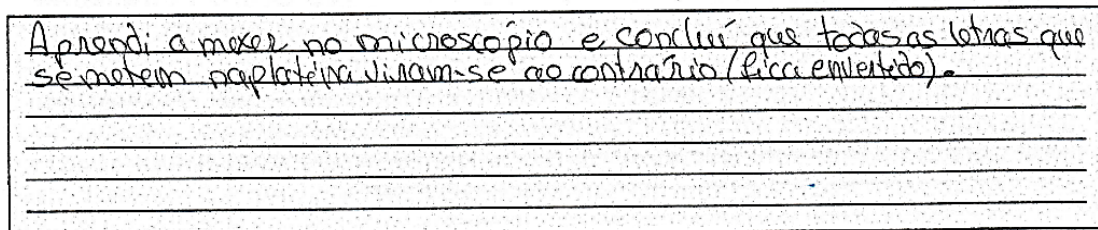 Aprendi a mexer no microscópio e concluí que todas as letras que
se metem na platéina viram-se ao contrário (fica envertido).